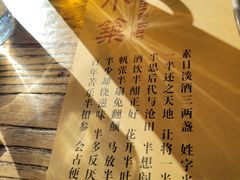 築
素日淡酒三两盏 姓字
一半还之天地 让将一
半思后代与沧田 半想
酒饮半酣正好 花开半吐
帆张半扇免翻颠 马放半
半少却饶滋味 半多反厌
百年苦乐半相参 会占便